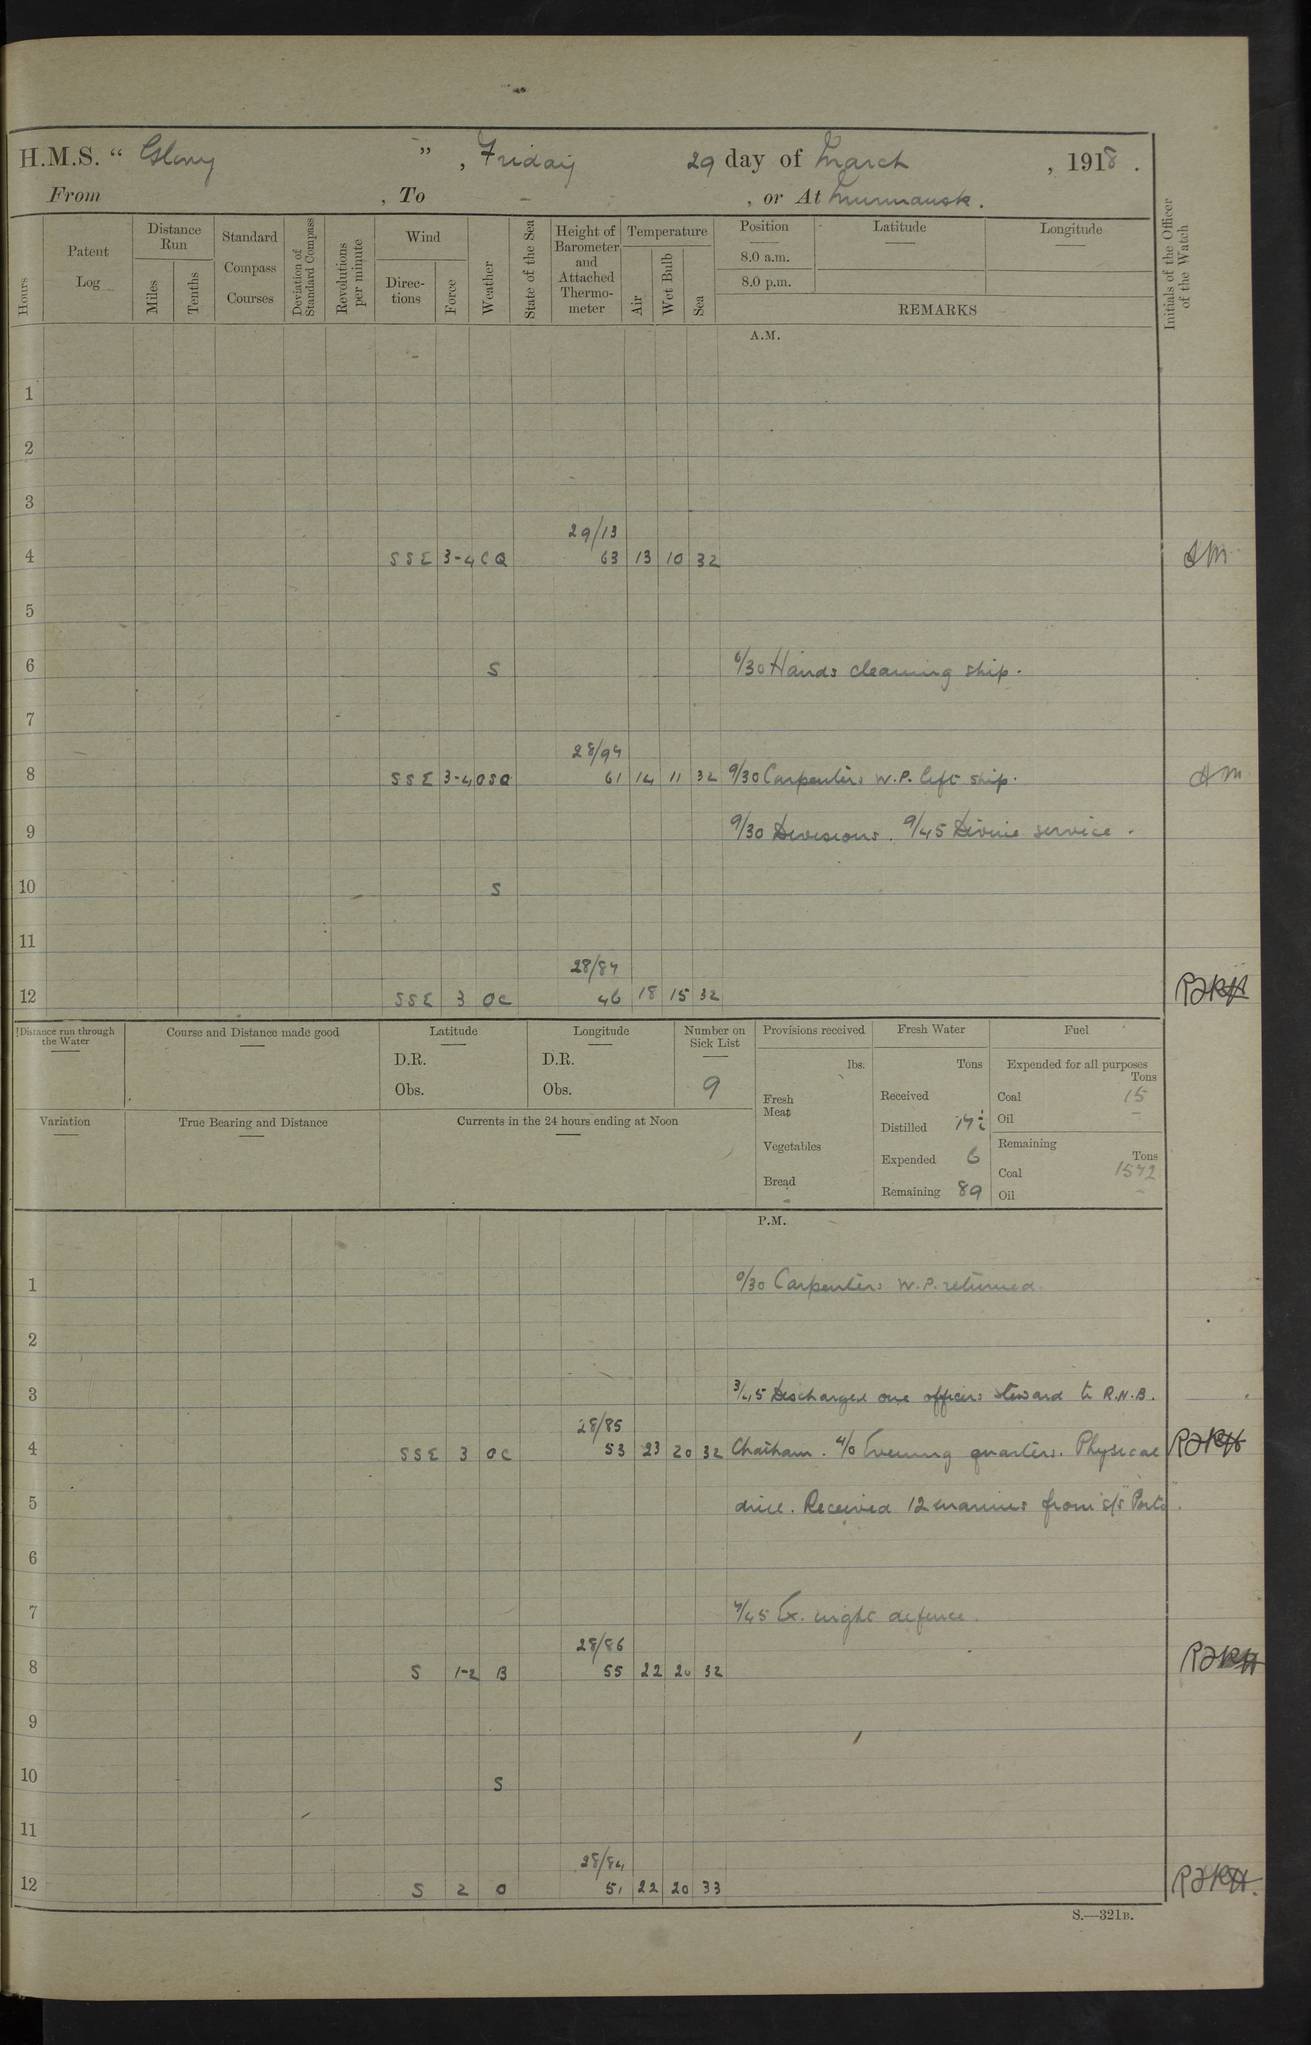 H.M.S. " Glory " , Friday 29 day of March , 1918 .
From , To - , or At Murmansk .
Hours
Patent Log
Distance Run
Miles
Tenths
Standard Compass Courses
Deviation of Standard Compass
Revolutions per minute
Wind
Directions
Force
Weather
State of the Sea
Height of Barometer and Attached Thermometer
Temperature
Air
Wet Bulb
Sea
Position
8.0 a.m.
8.0 p.m.
Latitude
Longitude
REMARKS
Initials of the Officer of the Watch
A.M.
1
2
3
29/13
4 SSE 3-4 CQ 63 13 10 32
5
6 S 6/30 Hands cleaning ship.
7
28/94
8 SSE 3-4 OSQ 61 14 11 32 9/30 Carpenters W.P. left ship.
9 9/30 Divisions. 9/45 Divine service.
10 S
11
28/84
12 SSE 3 OC 46 18 15 32
Distance run through the Water
Course and Distance made good
Latitude
D.R.
Obs.
Longitude
D.R.
Obs.
Number on Sick List
9
Provisions received
lbs.
Fresh Meat
Vegetables
Bread
Fresh Water
Tons
Received
Distilled
Expended 6
Remaining 89
Fuel
Expended for all purposes
Tons
Coal 15
Oil -
Remaining
Tons
Coal 1572
Oil -
Variation
True Bearing and Distance
Currents in the 24 hours ending at Noon
P.M.
1 0/30 Carpenters W.P. returned.
2
3 3/45 Discharged one officers steward to R.N.B.
28/85
4 SSE 3 OC 53 23 20 32 Chatham. 4/0 Evening quarters. Physical
5 drill. Received 12 marines from s/s "Porto".
6
7 7/45 Ex. night defence.
28/86
8 S 1-2 B 55 22 20 32
9
10 S
11
28/84
12 S 2 O 51 22 20 33
S.—321B.